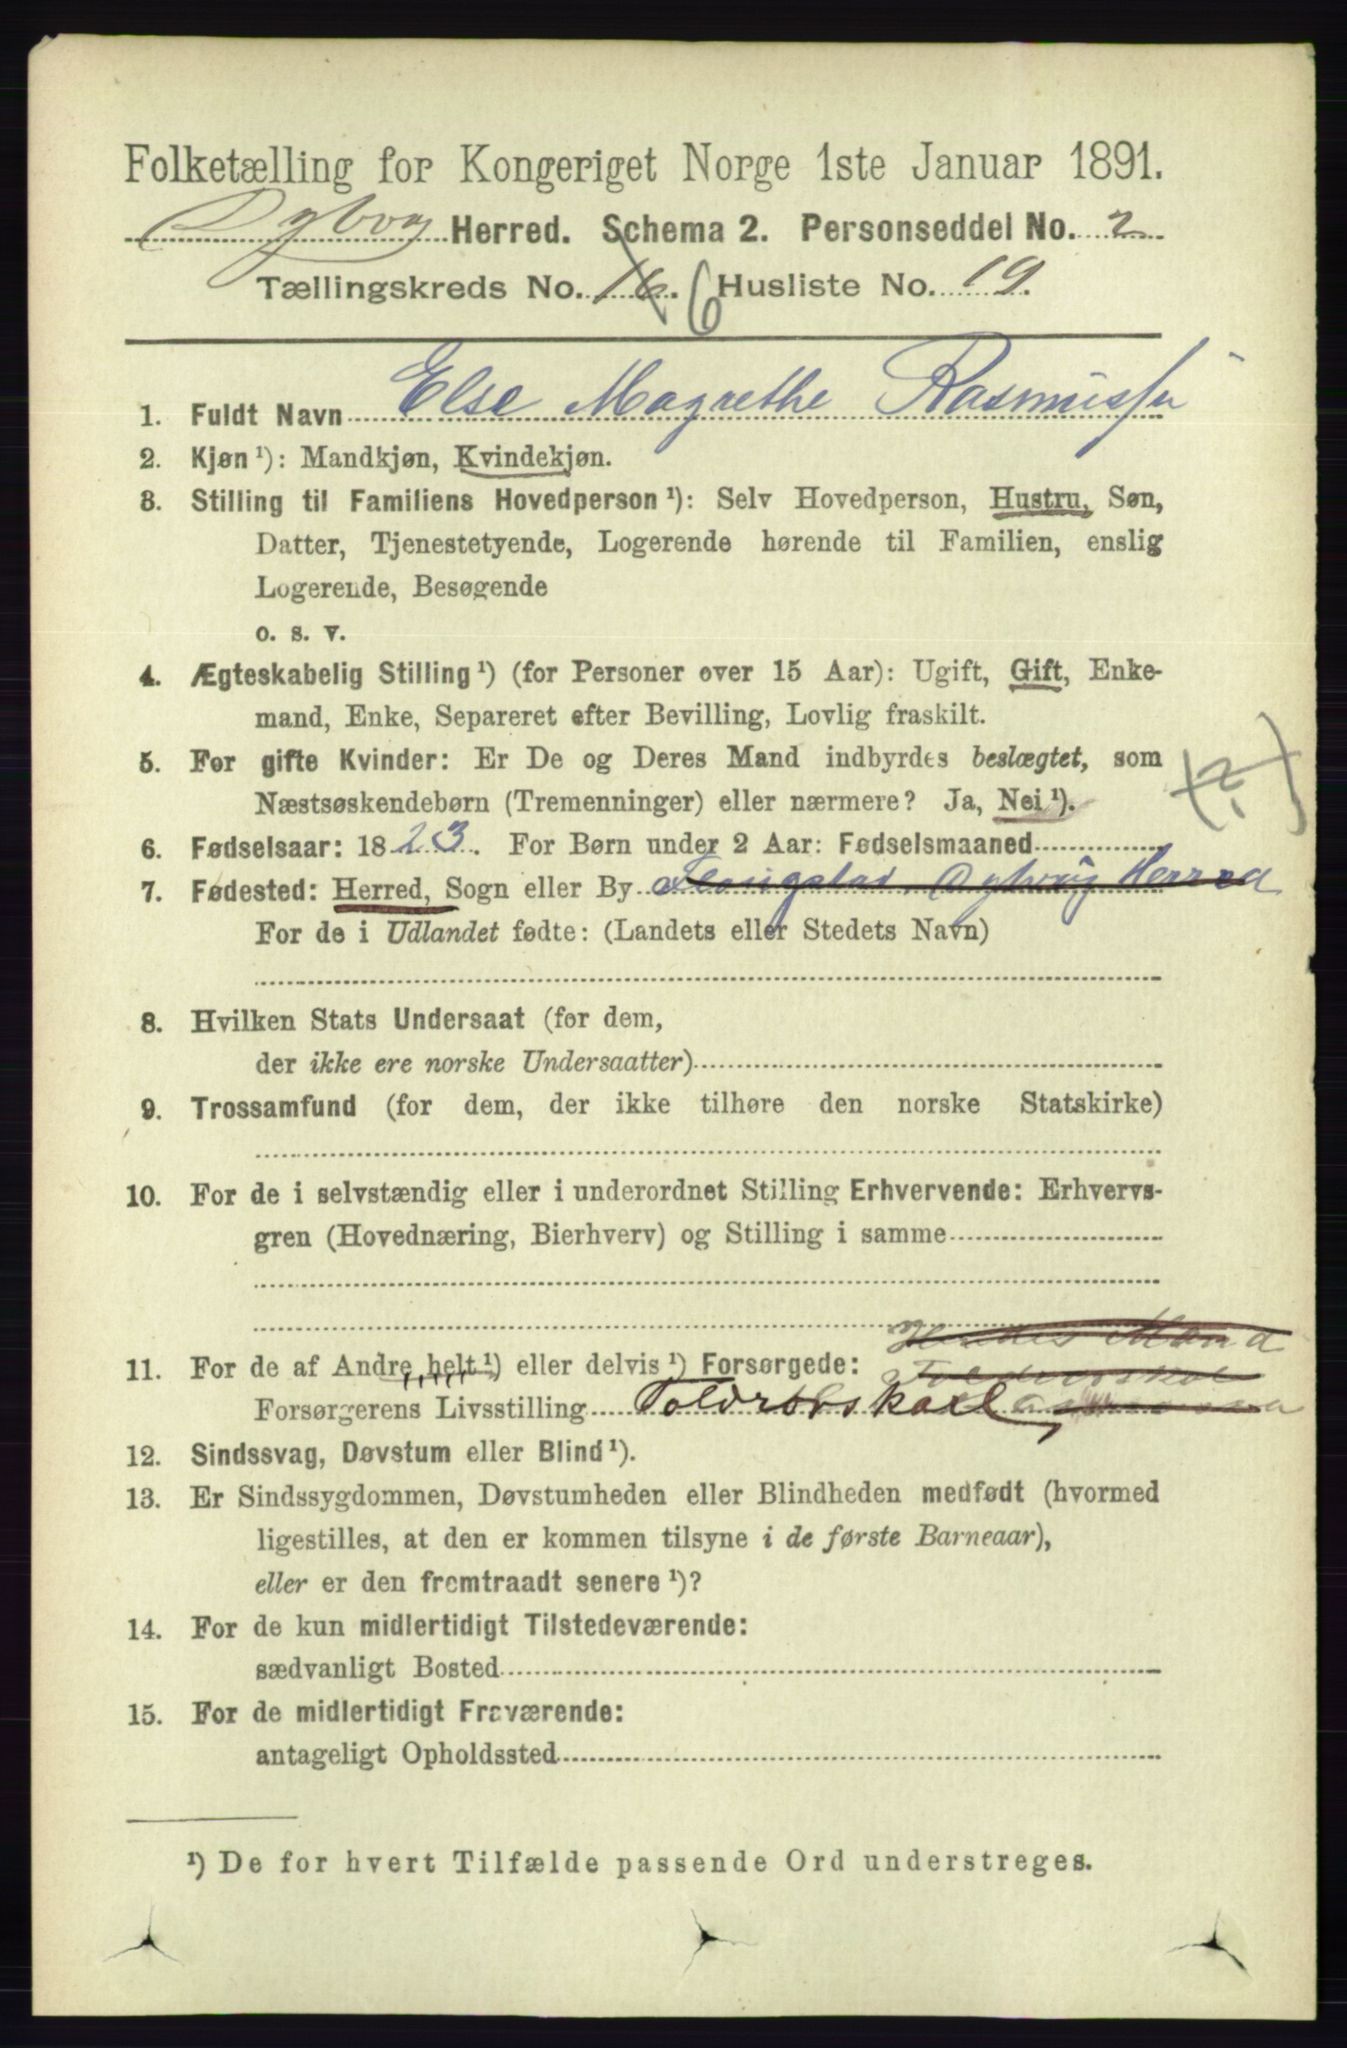 Folketælling for Kongeriget Norge 1ste Januar 1891.
Dybvag Herred. Schema 2. Personseddel No. 2
Tællingskreds No. 16. 6 Husliste No. 19.
1. Fuldt Navn Else Magrethe Rasmussen
2. Kjøn ¹): Mandkjøn, Kvindekjøn.
3. Stilling til Familiens Hovedperson ¹): Selv Hovedperson, Hustru, Søn,
Datter, Tjenestetyende, Logerende hørende til Familien, enslig
Logerende, Besøgende
o. s. v.
4. Ægteskabelig Stilling ¹) (for Personer over 15 Aar): Ugift, Gift, Enke-
mand, Enke, Separeret efter Bevilling, Lovlig fraskilt.
5. For gifte Kvinder: Er De og Deres Mand indbyrdes beslægtet, som
Næstsøskendebørn (Tremenninger) eller nærmere? Ja, Nei ¹).
(?)
6. Fødselsaar: 1823. For Børn under 2 Aar: Fødselsmaaned
7. Fødested: Herred, Sogn eller By Dybvig Herred
For de i Udlandet fødte: (Landets eller Stedets Navn)
8. Hvilken Stats Undersaat (for dem,
der ikke ere norske Undersaatter)
9. Trossamfund (for dem, der ikke tilhøre den norske Statskirke)
10. For de i selvstændig eller i underordnet Stilling Erhvervende: Erhvervs-
gren (Hovednæring, Bierhverv) og Stilling i samme
Hendes Mand
11. For de af Andre helt ¹) eller delvis ¹) Forsørgede:
Forsørgerens Livsstilling Toldroerskarl
12. Sindssvag, Døvstum eller Blind ¹).
13. Er Sindssygdommen, Døvstumheden eller Blindheden medfødt (hvormed
ligestilles, at den er kommen tilsyne i de første Barneaar),
eller er den fremtraadt senere ¹)?
14. For de kun midlertidigt Tilstedeværende:
sædvanligt Bosted
15. For de midlertidigt Fraværende:
antageligt Opholdssted
¹) De for hvert Tilfælde passende Ord understreges.